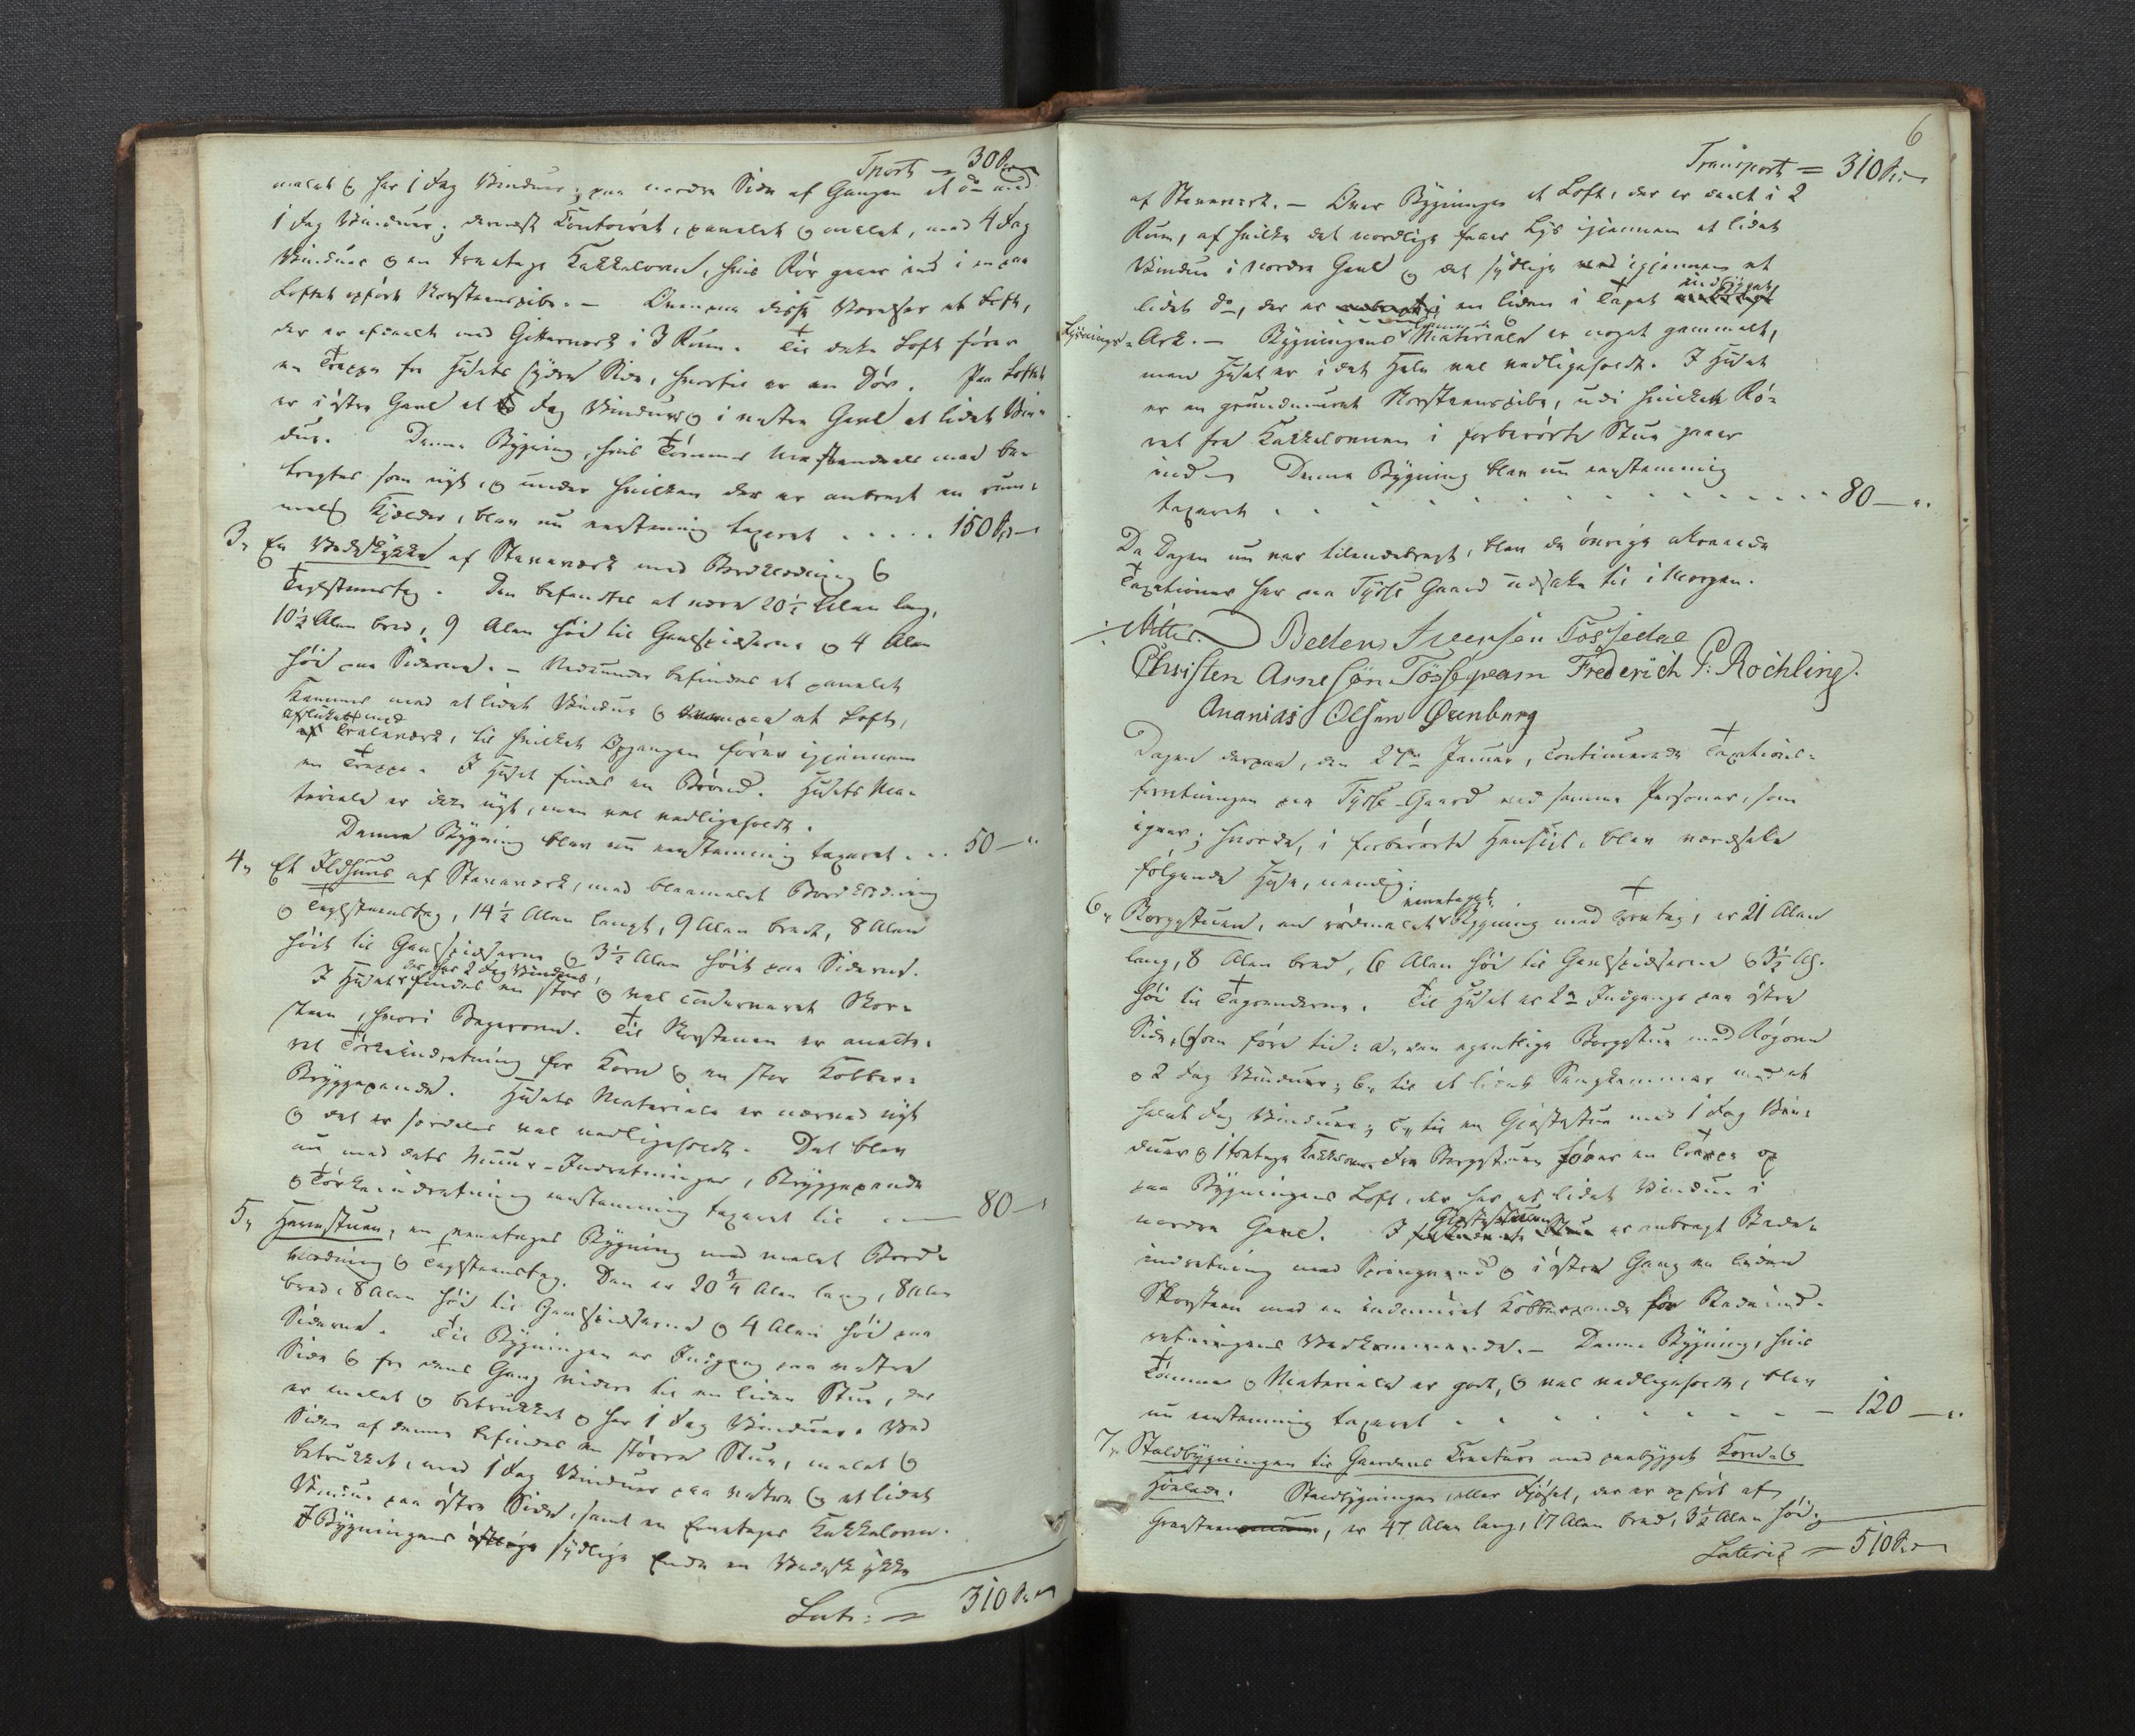 Tport = 30 Sp
malet og har 1 Fag Vinduer; paa nordre Side af Gangen et do med
1 Fag Vinduer; dernæst Contoiret, panelet og malet, med 4 Fag
Vinduer og en treetages Kakkelovn, hvis Rör gaaer ind i en paa
Loftet opfört Skorsteenspibe. – Ovenpaa disse Værelser et Loft,
der er afdeelt med Gitterværk i 3 Rum. Til dette Loft förer
en Trappe fra Husets sydre Side, hvortil er en Dör. Paa Loftet
er i östre Gavl et Fag Vinduer og i vestre Gavl et lidet Vin-
due. Denne Bygning, hvis Tömmer meestendeels maa be-
tragtes som nyt, og under hvilken der er anbragt en rum-
melig Kjelder, blev nu eenstemmig taxeret . . . . . 150 Sp
3, En Vedskykke af Stavværk med Bordklædning og
Teglsteenstag. Den befandtes at være 20½ Alen lang,
10½ Alen bred, 9 Alen höi til Gavlspidserne og 4 Alen
höi paa Siderne. – Nedenunder befindes et panelet
Kammer med et lidet Vindue og ovenpaa et Loft,
aflukket med
af Tralleværk, til hvilket Opgangen förer igjennem
en Trappe. I Huset findes en Brönd. Husets Ma-
teriale er ikke nyt, men vel vedligeholdt.
Denne Bygning blev nu eenstemmig taxeret . . . 50 – "
4, Et Ildhuus af Stavværk, med blaamalet Bordklædning
og Teglsteenstag, 14½ Alen langt, 9 Alen bredt, 8 Alen
höit til Gavlspidserne og 3½ Alen höit paa Siderne.
der har 2 Fag Vinduer,
I Huset findes en stor og vel indrettet Skor-
steen, hvori Bagerovn. Til Skorstenen er anett-
et Törkeindretning for Korn og en stor Kobber-
Bryggepande. Husets Materiale er nærved nyt
og det er særdeles vel vedligeholdt. Det blev
nu med dets Muur-Indretninger, Bryggepande
og Törkeindretning eenstemmig taxeret til – 80 –
5, Havestuen, en eenetages Bygning med malet Bord-
klædning og Teglsteenstag. Den er 20¾ Alen lang, 8 Alen
bred, 8 Alen höi til Gavlspidserne og 4 Alen höi paa
Siderne. Til Bygningen er Indgang paa vestre
Side og fra dens Gang videre til en liden Stue, der
er malet og betrukket og har 1 Fag Vinduer. Ved
Siden af denne befindes en större Stue, malet og
betrukket, med 1 Fag Vinduer paa vestre og et lidet
Vindue paa östre Side, samt en treetages Kakkelovn.
I Bygningens östlige sydlige Ende en Vedskykke
Lat: = 310 Sp
6
Transport = 310 Sp
af Stavværk. – Over Bygningen et Loft, der er deelt i 2
Rum, af hvilke det nordlige faaer Lys igjennem et lidet
Vindue i nordre Gavl og det sydlige ved igjennem et
indbygget
lidet do, der er anbragt i en liden i Taget anbragt
Lysnings-Ark. – Bygningens Materiale er noget gammelt,
men Huset er i det Hele vel vedligeholdt. I Huset
er en grundmuret Skorsteenspibe, udi hvilken Rö-
ret fra Kakkelovnen i forberörte Stue gaaer
ind. Denne Bygning blev nu eenstemmig
taxeret . . . . . . . . . . . . 80 – "
Da Dagen nu var tilendebragt, blev de övrige akrævede
Taxationer her paa Tysse Gaard udsatte til i Morgen.
Christen Arnesön Tösse Frederich P. Rochling.
Ananias Olsen Örenberg
Dagen derpaa, den 27de Januar, continuerede Taxations-
forretningen paa Tysse-Gaard ved samme Personer, som
igaar; hvorda, i forberörte Hensigt, blev værdsatte
fölgende Huse, nemlig:
eenetages
6, Borgestuen, en rödmalet Bygning med Torvtag, er 21 Alen
lang, 8 Alen bred, 6 Alen höi til Gavlspidserne og 3½ Al.
höi til Tagrenderne. Til Huset er 2de Indgange paa östre
Side, som före til: a, den egentlige Borgestue med Rögovn
og 2 Fag Vinduer; b, til et lidet Sengkammer med et
halvt Fag Vinduer; c, til en Gjæstestue med 1 Fag Vin-
duer og 1 toetages Kakkelovn. Fra Borgestuen förer en Trappe op
paa Bygningens Loft, der har et lidet Vindue i
nordre Gavl. I Gjæstestuen er anbragt Bade-
indretning med Springvand og i östre Gang en liden
Skorsteen med en indmuret Kobberpande for Badeind-
retningens Vedkommende. – Denne Bygning, hvis
Tömmer og Materiale er godt, og vel vedligeholdt, blev
nu eenstemmig taxeret . . . . . . . . – 120 – "
7, Staldbygningen til Gaardens Creature med paabygget Korn- og
Höelade. Staldbygningen, eller Fjöset, der er opfört af
Graasteen, er 47 Alen lang, 17 Alen bred, 3½ Alen höi,
Lateris = 510 Sp